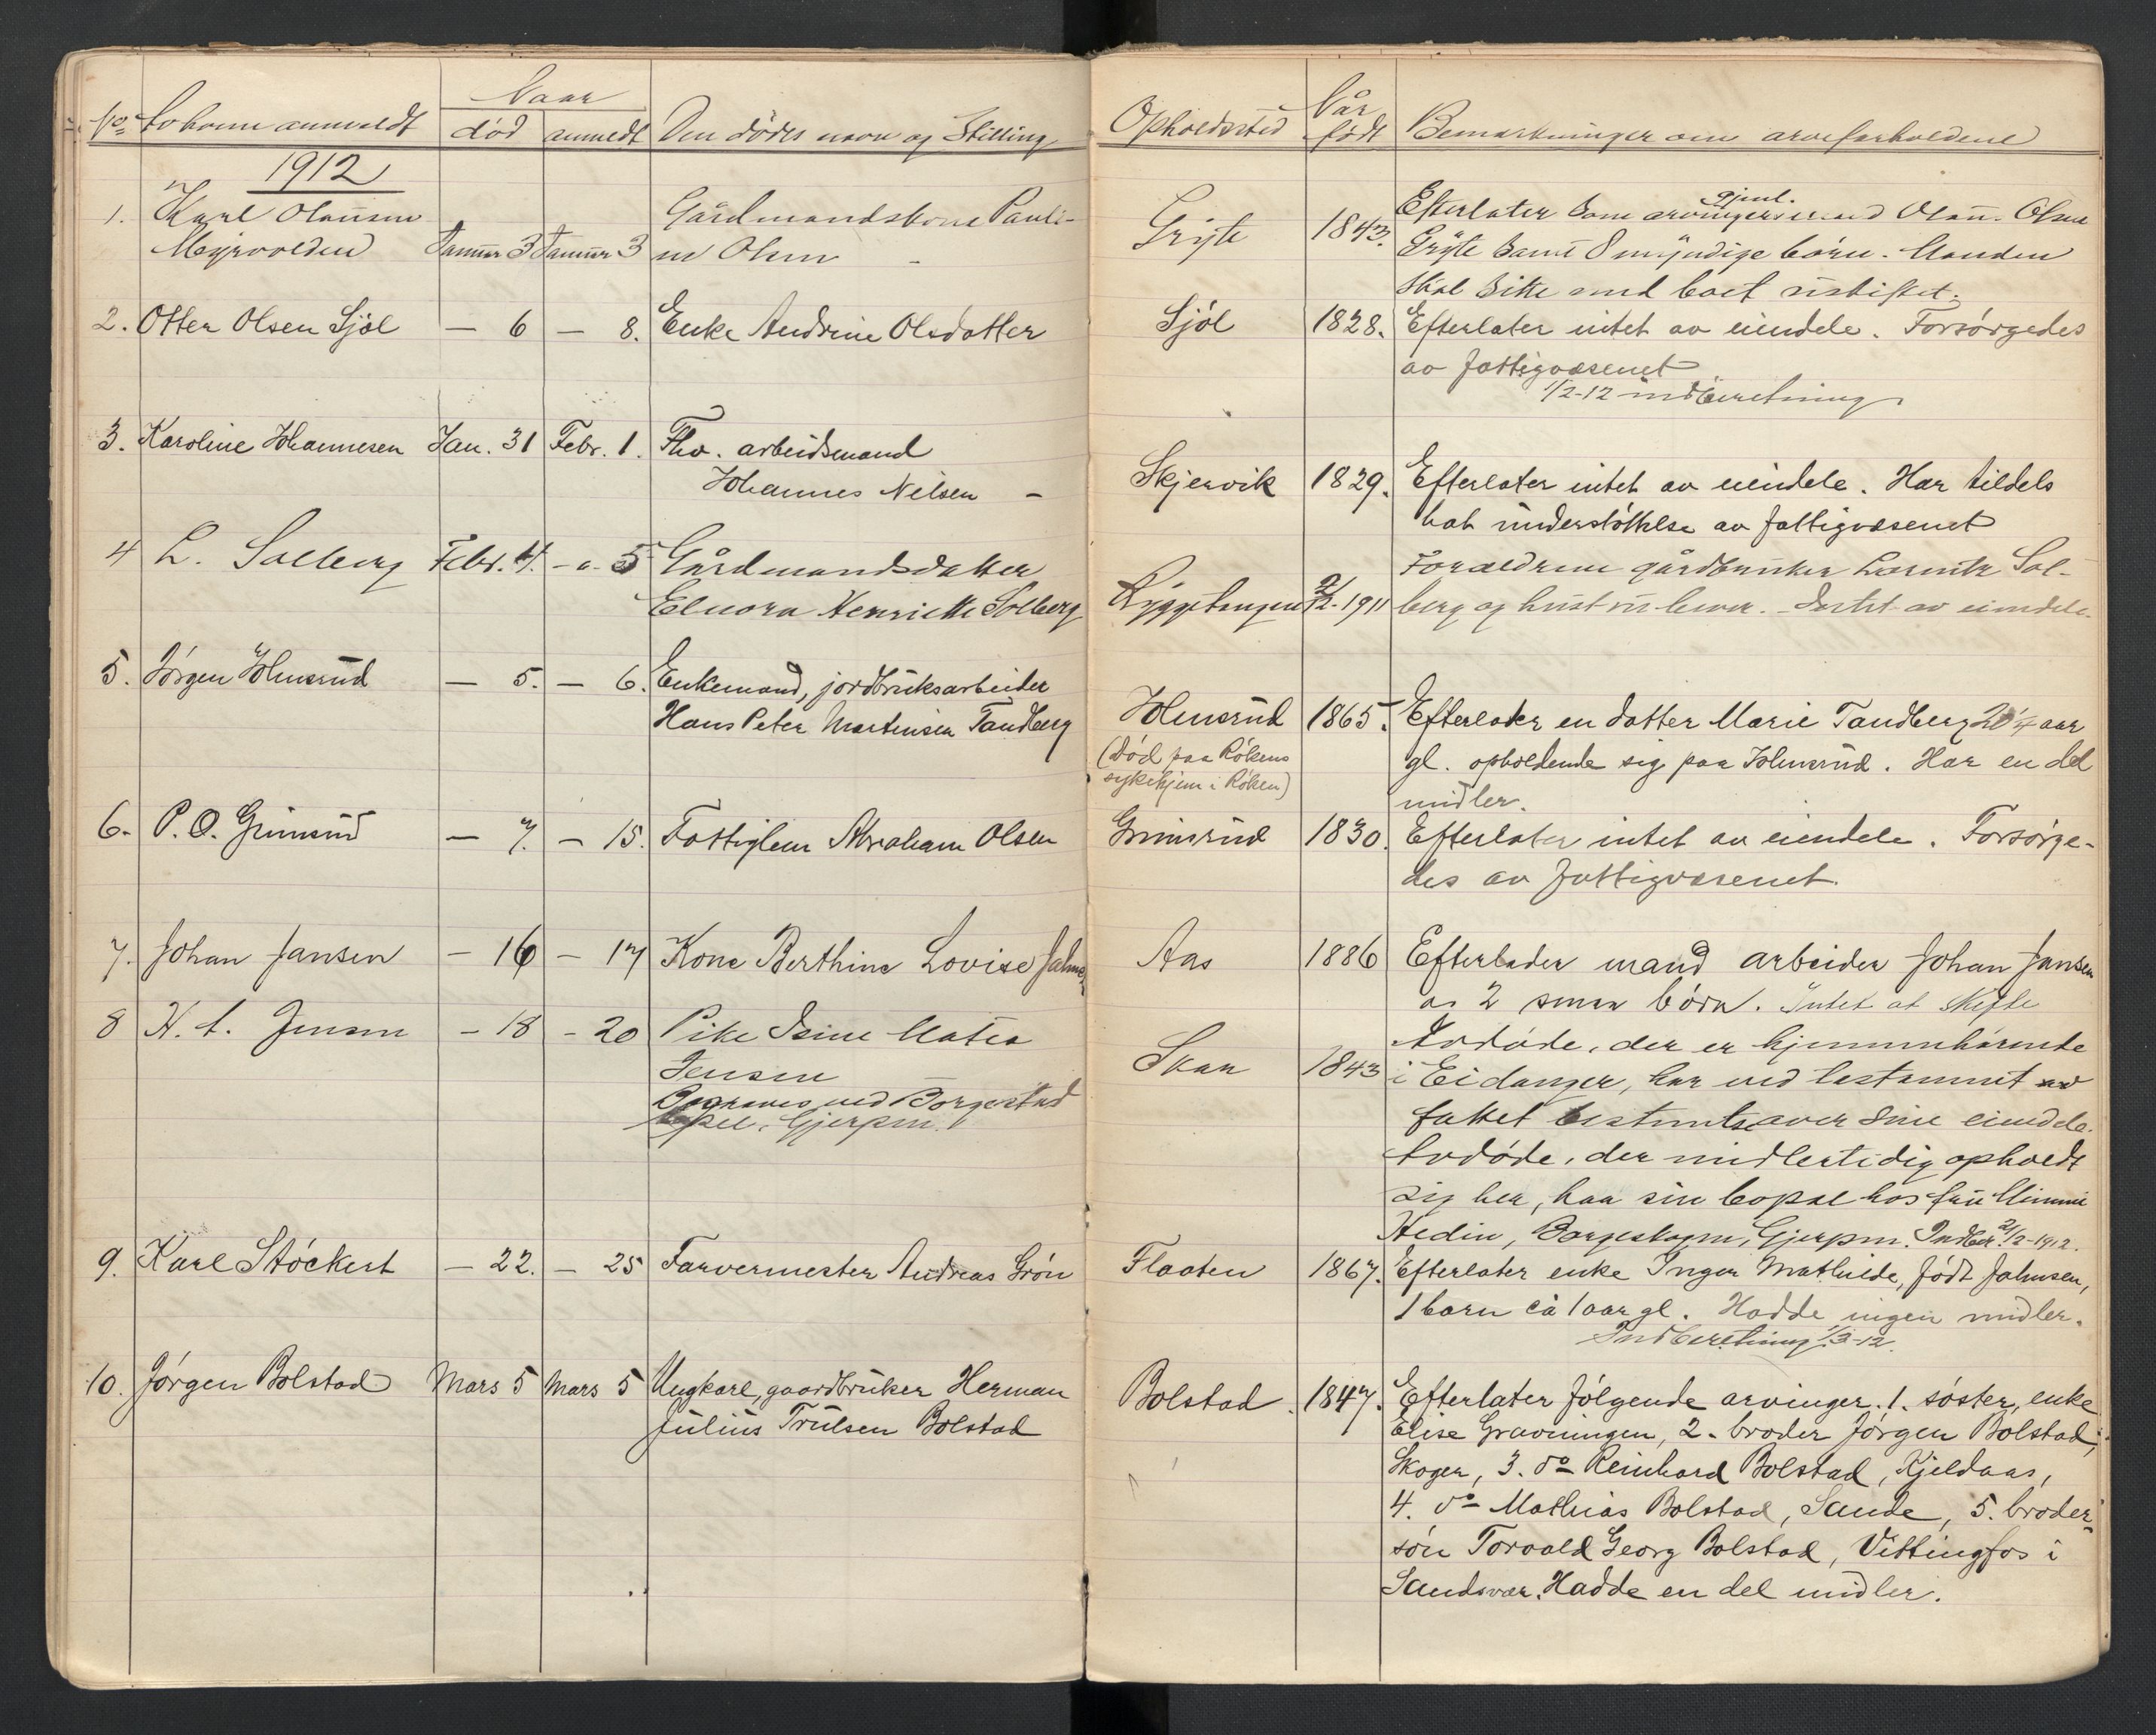 No
anmeldt
Naar
død
anmeldt
Den dødes navn og Stilling
Opholdssted
Når født
Bemærkninger om arveforholdene
1912
1. Karl Olaussen
Januar 3 Januar 3
Gårdmandskone Pauli-
ne Olsen
Gryte 1843.
gjenl.
Efterlater som arvinger mand Olau. Olsen
Gryte samt 8 myndige børn. Manden
skal sitte med boet uskiftet.
2. Otter Olsen Sjøl — 6 — 8. Enke Andrine Olsdatter
Sjøl 1828. Efterlater intet av eiendele. Forsørgedes
av fattigvæsenet
1/2-12 indberetning
3. Karoline Johannesen Jan. 31 Febr. 1. Fhv. arbeidsmand
Johannes Nilsen —
Skjervik 1829. Efterlater intet av eiendele. Har tildels
hat understøttelse av fattigvæsenet
4 L. Solberg Febr. 4. -"- 5 Gårdmandsdatter
Elnora Henriette Solberg
2/2-1911
Forældrene gårdbruker Lorentz Sol-
berg og hustru lever. Intet av eiendele.
5. Jørgen Holmsrud — 5. — 6. Enkemand, jordbruksarbeider
Hans Peter Martinsen Tandberg
Holmsrud 1865. Efterlater en datter Marie Tandberg 20 1/4 aar
(død paa Røkens
sykehjem i Røken)
gl. opholdende sig paa Holmsrud. Har en del
midler.
6. P. O. Grimsrud — 7. — 15. Fattiglem Abraham Olsen
Grimsrud 1830. Efterlater intet av eiendele. Forsørge-
des av fattigvæsenet.
7. Johan Jansen — 16 — 17 Kone Berthine Lovise
Aas 1886 Efterlader mand arbeider Johan Jansen
os 2 smaa børn. Intet at skifte
8 H. A. Jensen — 18 — 20 Pike Isine Matea
Jensen
Begraves ved Borgestad
kapel, Gjerpen.
Skan 1843
Avdøde, der er hjemmehørende
i Eidanger, har ved testament
fattet bestemtse over sine eiendele.
Avdøde, der midlertidig opholdt
sig her, har sin bopæl hos fru Mimmi
Hedin, Borgeskogen, Gjerpen. Indber. 21/2-1912.
9. Karl Støckert — 22. — 25 Farvermester Andreas Grøn
Flaaten 1867. Efterlater enke Inger Mathilde, født Jahnsen,
1 barn ca 1 aar gl. Hadde ingen midler.
Indberetning 1/3-12.
10. Jørgen Bolstad Mars 5 Mars 5 Ungkarl, gaardbruker Herman
Julius Trulsen Bolstad
Bolstad. 1847. Efterlater følgende arvinger. 1. søster, enke
Elise Gravningen, 2. broder Jørgen Bolstad,
Skoger, 3. do Reinhard Bolstad, Kjeldaas,
4. do Mathias Bolstad, Sande, 5. broder-
søn Torvald Georg Bolstad, Vittingfos i
Sandsvær. Hadde en del midler.